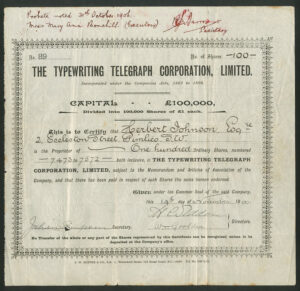 Probate noted 30th October 1906
Miss Mary Ann Thornhill (Executrix)
Secretary
No. 89
No. of Shares —100—
THE TYPEWRITING TELEGRAPH CORPORATION, LIMITED.
Incorporated under the Companies Acts, 1862 to 1898.
CAPITAL £100,000,
Divided into 100,000 Shares of £1 each.
This is to Certify that Herbert Johnson, Esqre
2 Eccleston Street Pimlico S.W.
is the Proprietor of One hundred Ordinary Shares, numbered
both inclusive, in THE TYPEWRITING TELEGRAPH
CORPORATION, LIMITED, subject to the Memorandum and Articles of Association of the
Company, and that there has been paid in respect of such Shares the sums hereon endorsed.
Given under the Common Seal of the said Company,
this day of November 190
Directors.
Secretary.
No Transfer of the whole or any part of the Shares represented by this Certificate can be recognised unless it be
deposited at the Company's office.